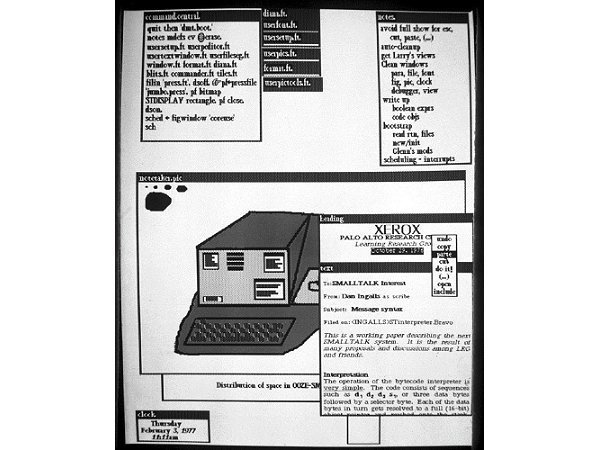 command central.
quit then 'dmt.boot.'
notes mdefs ev @erase.
usersetup.ft userpeditor.ft
usertextwindow.ft userfileseg.ft
window.ft format.ft diana.ft
blits.ft commander.ft tiles.ft
'jumbo.press'. pf bitmap
STDISPLAY rectangle. pf close.
dson.
sched + figwindow 'coreuse'
sch
diana.ft.
userfont.ft.
usersetup.ft.
userpics.ft.
format.ft.
userpictools.ft.
notes.
avoid full show for esc,
cut, paste, (...)
auto-cleanup
get Larry's views
Clean windows
para, file, font
fig, pic, clock
debugger, view
write up
boolean exprs
code objs
bootstrap
read rtn, files
new/init
Glenn's mods
scheduling + interrupts
notetaker.pic
heading
XEROX
PALO ALTO RESEARCH C
Learning Research Gro
October 19, 197
undo
copy
paste
cut
do it!
(...)
open
include
text
To: SMALLTALK Interest
From: Dan Ingalls as scribe
Subject: Message syntax
Filed on: <INGALLS>STinterpreter.Bravo
This is a working paper describing the next
SMALLTALK system. It is the result of
many proposals and discussions among LRG
and friends.
Interpretation
The operation of the bytecode interpreter is
very simple. The code consists of sequences
such as d1 d2 d3 s, or three data bytes
followed by a selector byte. Each of the data
bytes in turn gets resolved to a full (16-bit)
Distribution of space in OOZE-SM
clock
Thursday
February 3, 1977
11:11am